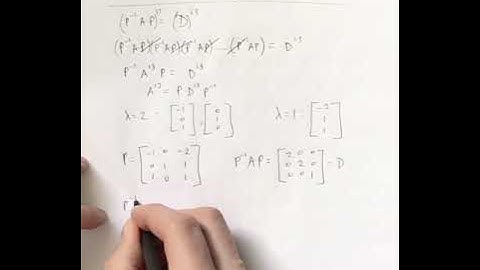 (P⁻¹ A P)¹³ = (D)¹³
(P⁻¹AP)(P⁻¹AP)(P⁻¹AP) ... (P⁻¹AP) = D¹³
P⁻¹ A¹³ P = D¹³
A¹³ = P D¹³ P⁻¹
λ = 2 : [-1 0 1], [0 1 0] λ = 1 : [-2 1 1]
P = [-1 0 -2; 0 1 1; 1 0 1] P⁻¹ A P = [2 0 0; 0 2 0; 0 0 1] = D
P⁻